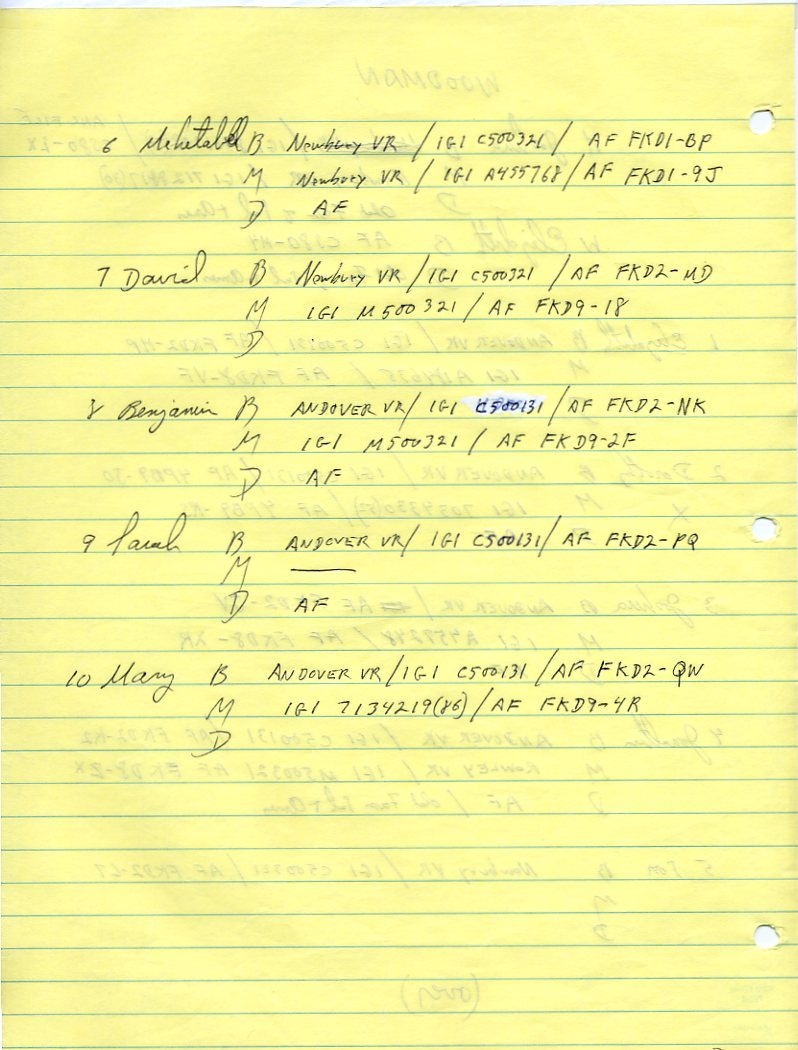 6 Mehetabell B Newbury VR / IGI C500321 / AF FKD1-BP
M Newbury VR / IGI A455768 / AF FKD1-9J
D AF
7 David B Newbury VR / IGI C500321 / AF FKD2-MD
M IGI M500321 / AF FKD9-18
D
8 Benjamin B ANDOVER VR / IGI C500131 / AF FKD2-NK
M IGI M500321 / AF FKD9-2F
D AF
9 Sarah B ANDOVER VR / IGI C500131 / AF FKD2-PQ
M —
D AF
10 Mary B ANDOVER VR / IGI C500131 / AF FKD2-QW
M IGI 7134219(86) / AF FKD9-4R
D